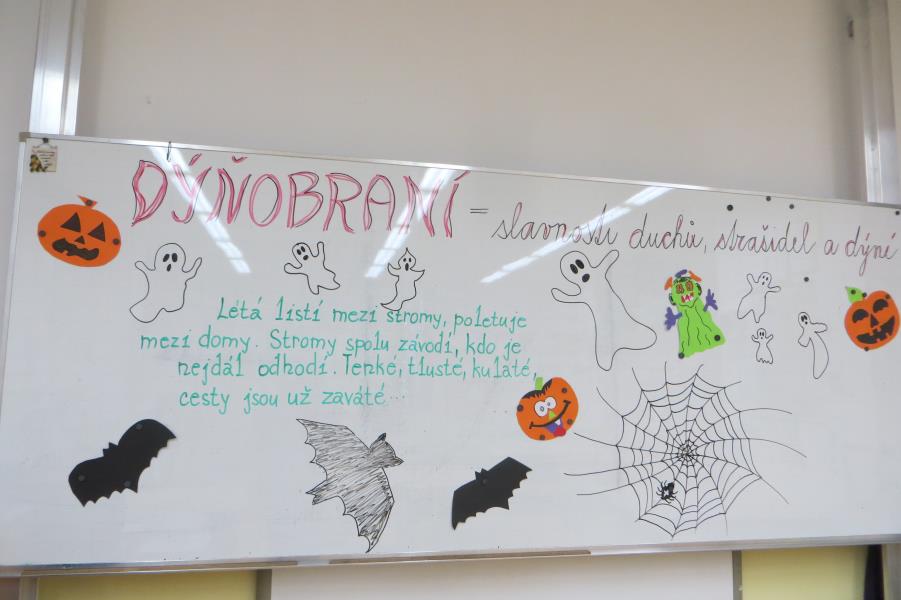 DÝŇOBRANÍ = slavnosti duchů, strašidel a dýní
Létá listí mezi stromy, poletuje
mezi domy. Stromy spolu závodí, kdo je
nejdál odhodí. Tenké, tlusté, kulaté,
cesty jsou už zaváté...